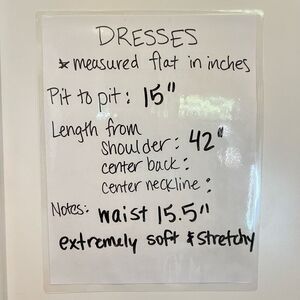 DRESSES
* measured flat in inches
Pit to pit: 15"
Length from
shoulder: 42"
center back:
center neckline:
Notes: waist 15.5"
extremely soft & stretchy